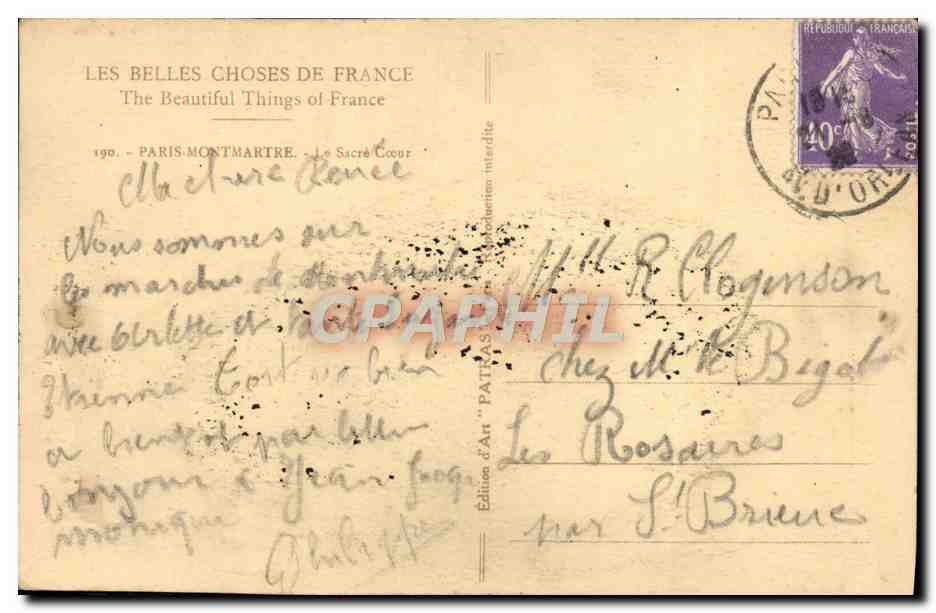 LES BELLES CHOSES DE FRANCE
The Beautiful Things of France
190. - PARIS-MONTMARTRE. - Le Sacré Cœur
Ma chère Renée
Nous sommes sur
les marches de Montmartre
avec Arlette et
Etienne Tout va bien
a bientot par lettre
bonjour à Jean Jacq
monique
Philippe
Édition d'Art "PATRAS" Reproduction interdite
CPAPHIL
RÉPUBLIQUE FRANÇAISE
40c
POSTES
PA
D'OR
Mlle R Clogenson
chez Mme Bigot
Les Rosaires
par St Brieuc